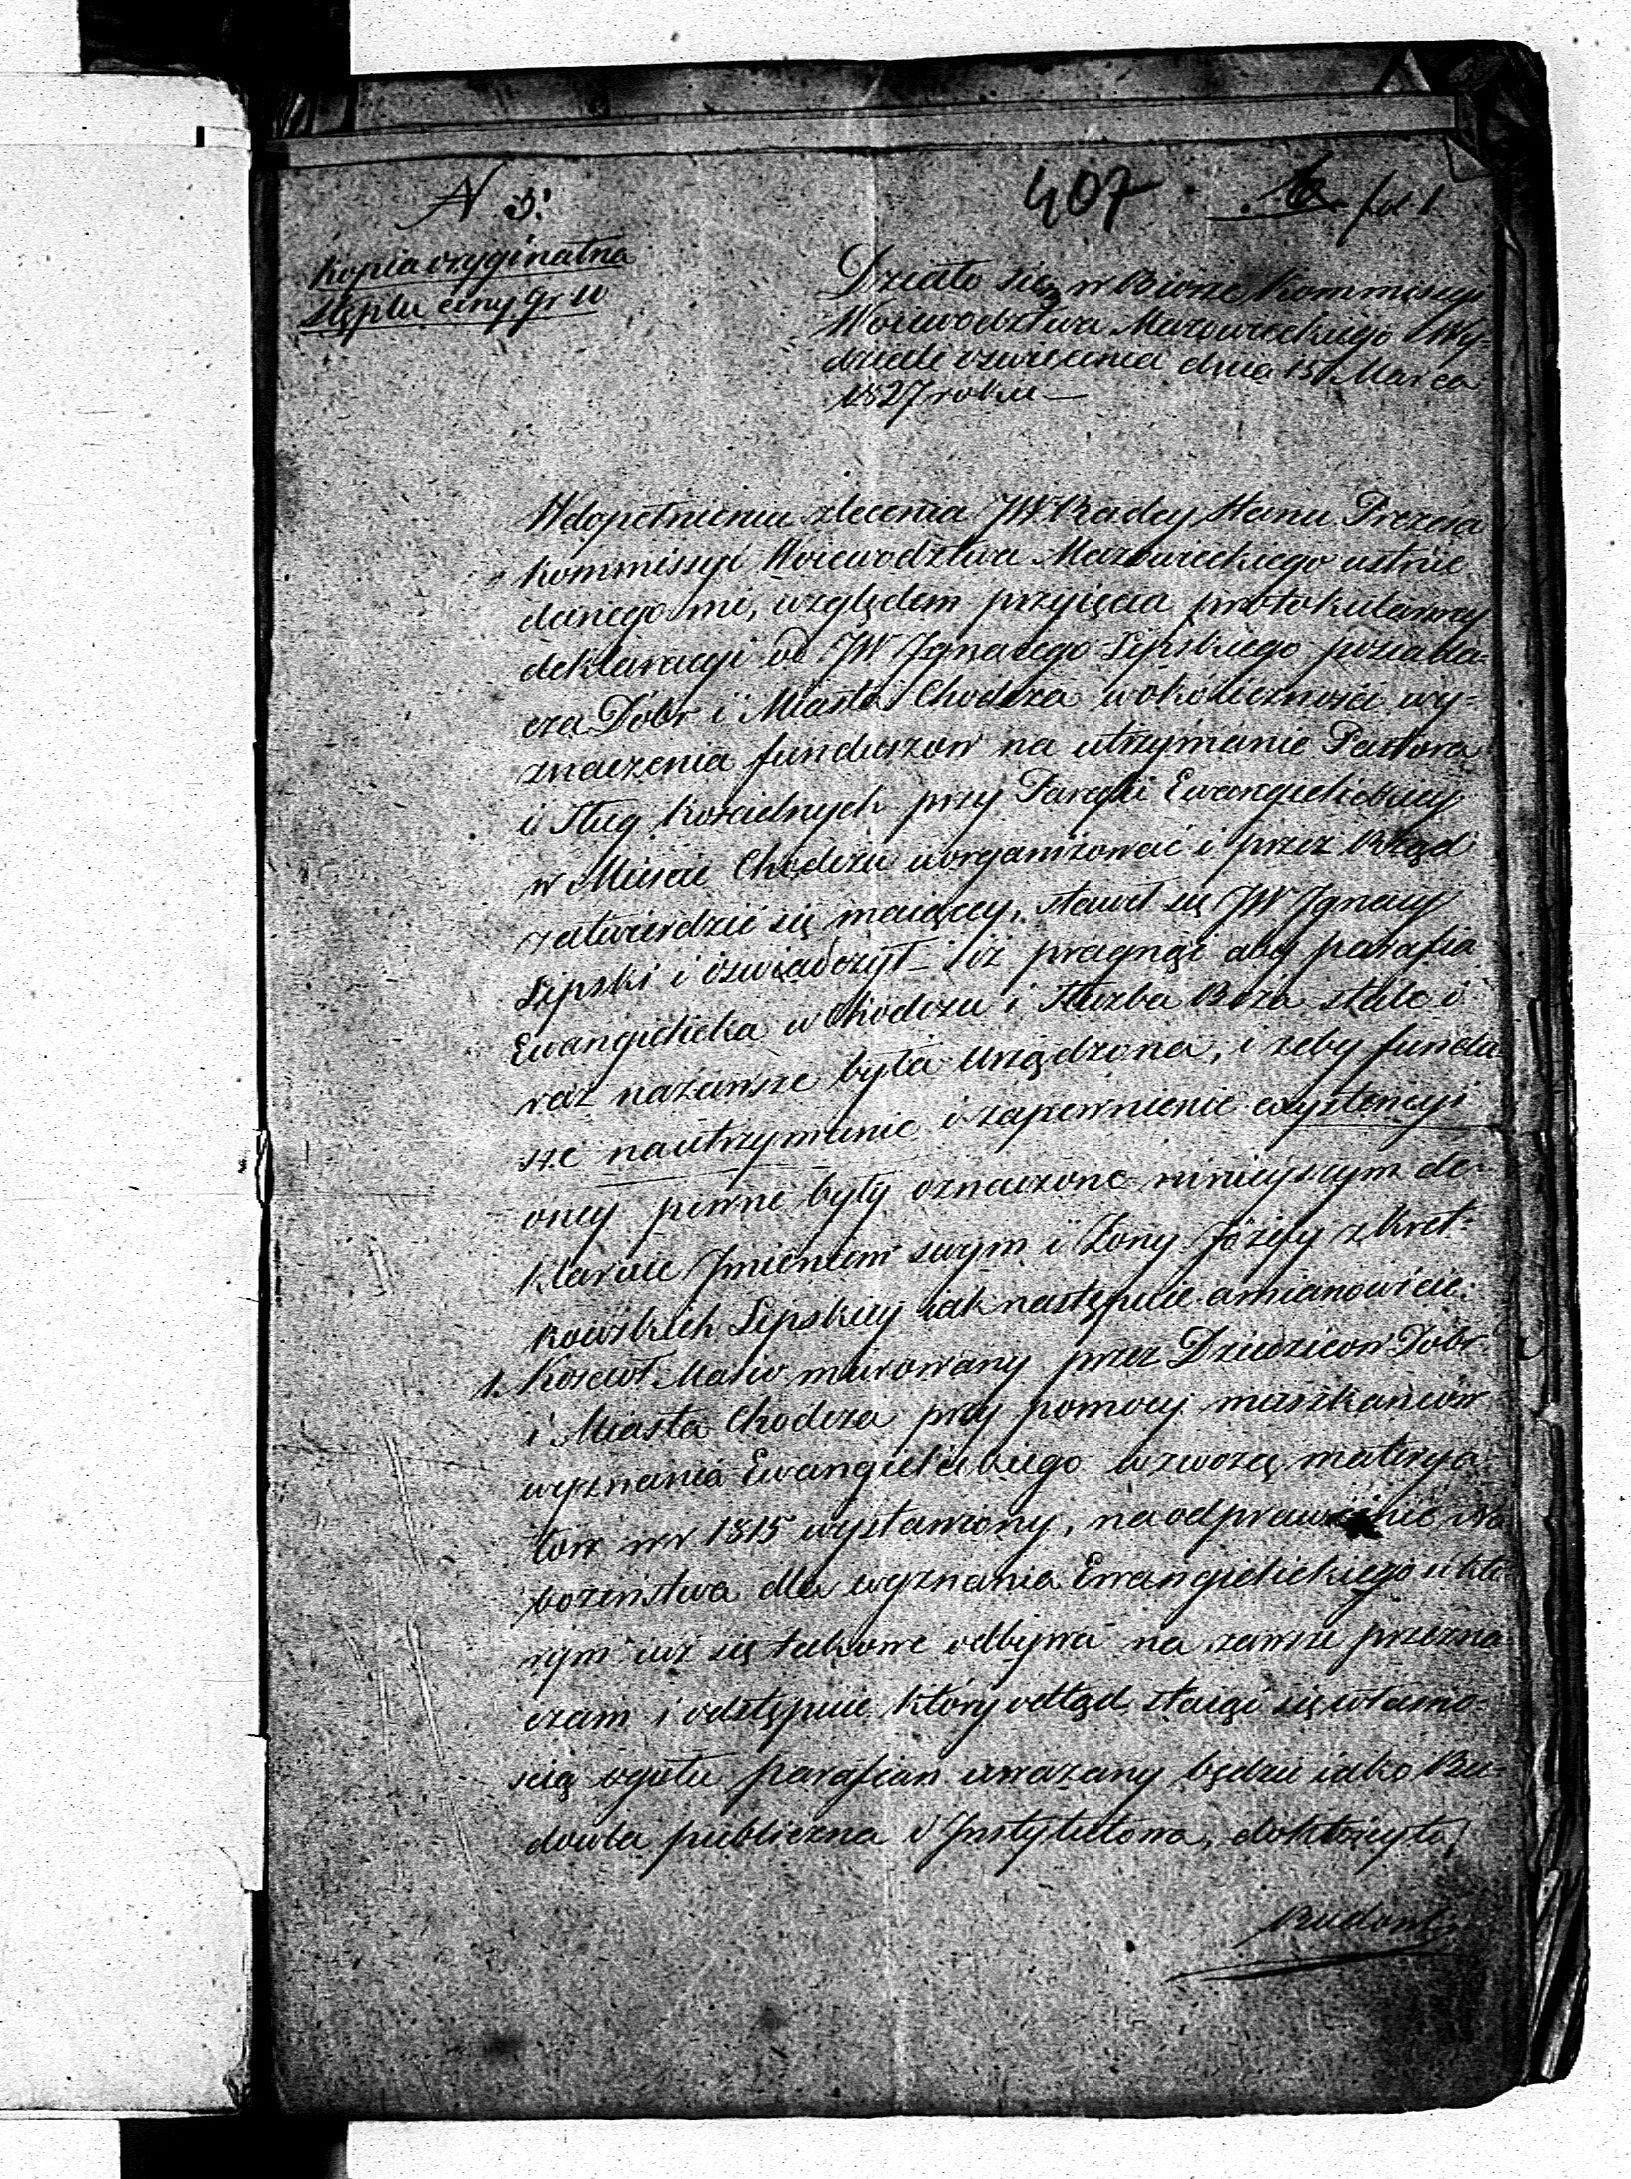 N 3.
407
fol 1
Kopia oryginalna
stęplu ceny gr 10
Działo się w Biórze Kommissyi
Woiewodztwa Mazowieckiego Wy-
dziale oswiecenia dnia 15 Marca
1827 roku —
W dopełnieniu zlecenia JW Radcy Stanu Prezesa
Kommissyi Woiewodztwa Mazowieckiego ustnie
danego mi, względem przyięcia protokularney
deklaracyi od JW Ignacego Lipskiego posiada-
cza Dóbr i Miasta Chodcza w okoliczności wy-
znaczenia funduszow na utrzymanie Pastora
i sług kościelnych przy Parafii Ewangielickiey
w Mieście Chodczu uorganizować i przez Rząd
zatwierdzić się maiącey, stawił się JW Ignacy
Lipski i oswiadczył – iż pragnąc aby parafia
Ewangielicka w Chodczu i służba Boża stale i
raz nazawsze była urządzona, i żeby fundu-
sze na utrzymanie i zapewnienie exystencyi
oney pewne były oznaczone ninieyszym de-
klaruie Imieniem swym i Żony Józefy z Kret-
kowskich Lipskiey iak następuie amianowicie:
1. Kościoł Massiw murowany przez Dziedzicow Dobr
i Miasta Chodcza przy pomocy mieszkańców
wyznania Ewangielickiego w zwozcę materya-
łow w r 1815 wystawiony, na odprawienie Na-
bożeństwa dla wyznania Ewangielickiego w któ-
rym iuż się takowe odbywa na zawsze przezna-
czam i odstępuie który odtąd staiąc się własno-
scią ogułu parafian uważany będzie iako Bu-
dowla publiczna i Instytutowa, do którey to
Budowli